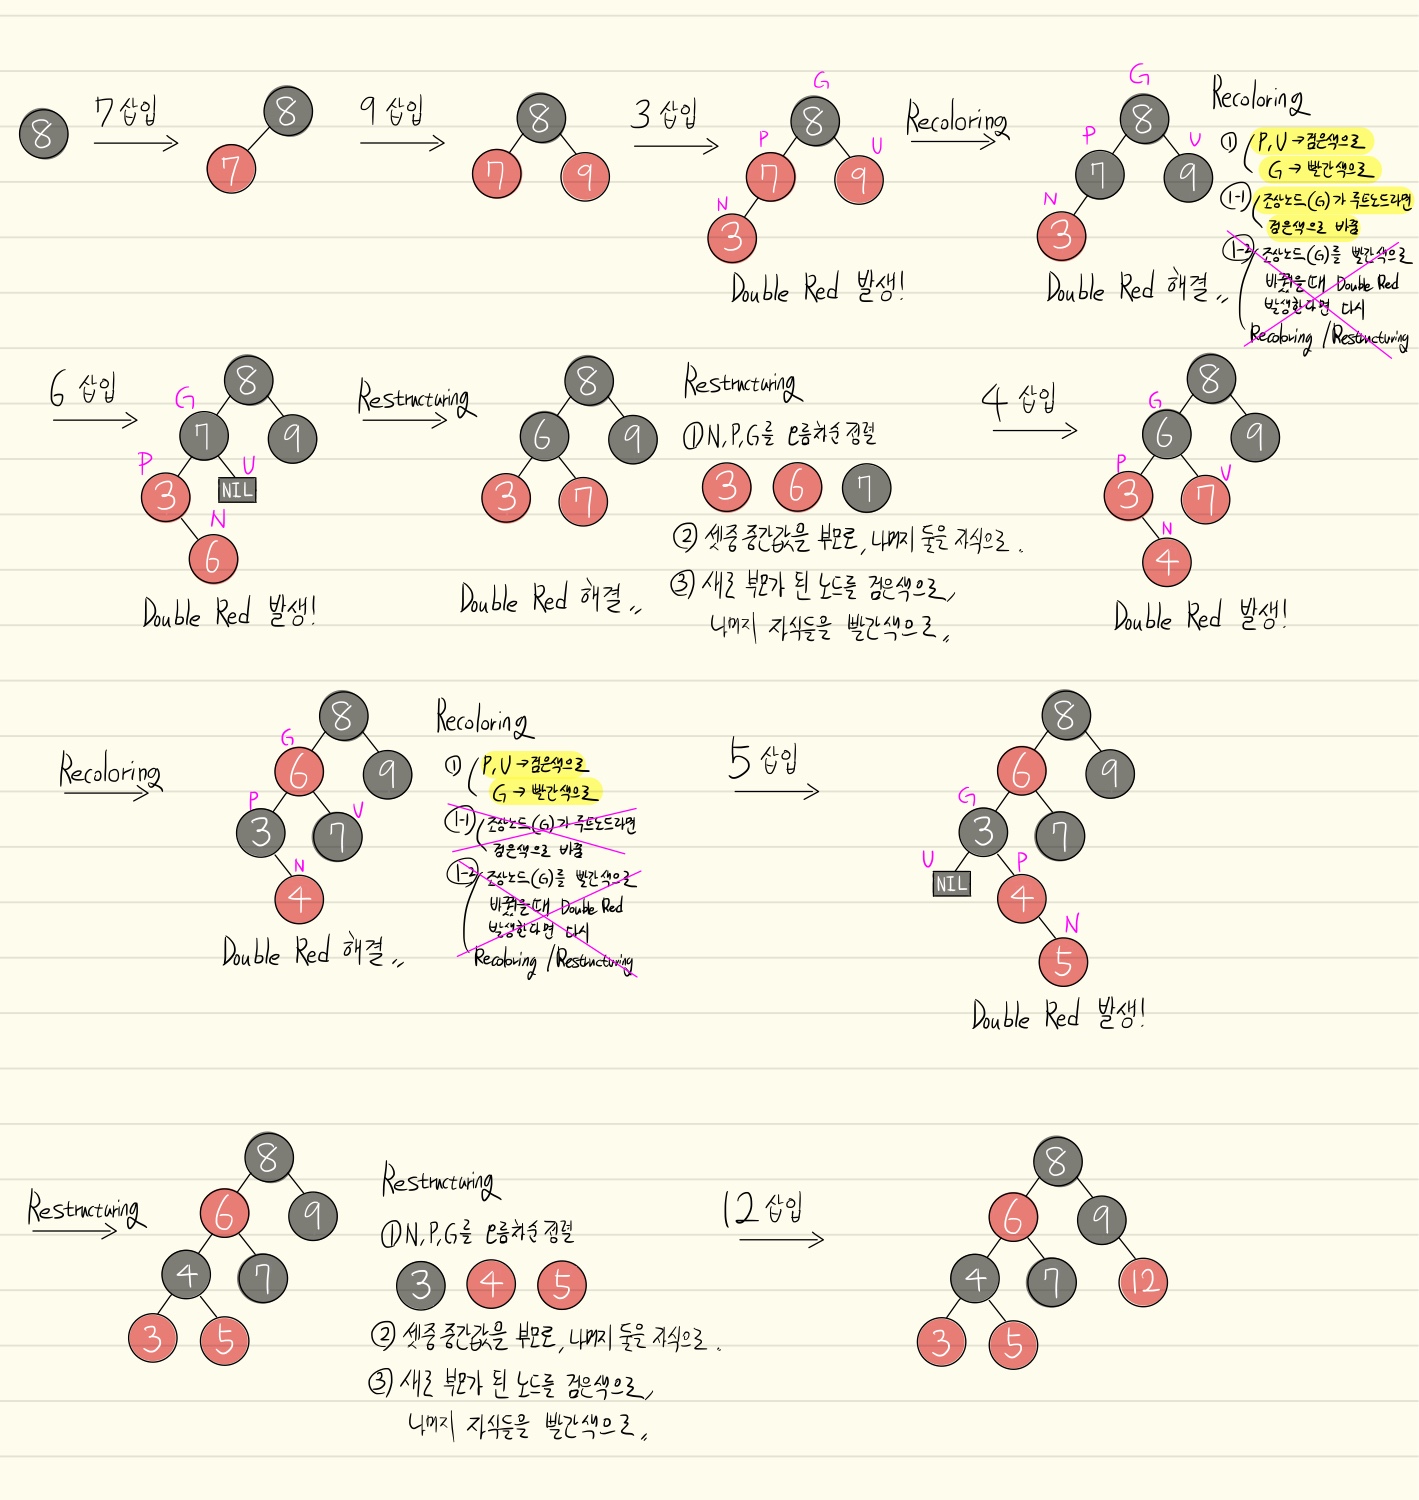 8
7 삽입
8
7
9 삽입
8
7 9
3 삽입
G
8
P U
7 9
N
3
Double Red 발생!
Recoloring
G
8
P U
7 9
N
3
Double Red 해결〃
Recoloring
① P, U → 검은색으로
G → 빨간색으로
①-1 조상노드(G)가 루트노드라면
검은색으로 바꿈
①-2 조상노드(G)를 빨간색으로
바꿨을때 Double Red
발생한다면 다시
Recoloring / Restructuring
6 삽입
8
G
7 9
P U
3 NIL
N
6
Double Red 발생!
Restructuring
8
6 9
3 7
Double Red 해결〃
Restructuring
① N, P, G를 오름차순 정렬
3 6 7
② 셋중 중간값을 부모로, 나머지 둘을 자식으로.
③ 새로 부모가 된 노드를 검은색으로,
나머지 자식들을 빨간색으로〃
4 삽입
8
G
6 9
P U
3 7
N
4
Double Red 발생!
Recoloring
8
G
6 9
P U
3 7
N
4
Double Red 해결〃
Recoloring
① P, U → 검은색으로
G → 빨간색으로
①-1 조상노드(G)가 루트노드라면
검은색으로 바꿈
①-2 조상노드(G)를 빨간색으로
바꿨을때 Double Red
발생한다면 다시
Recoloring / Restructuring
5 삽입
8
6 9
G
3 7
U P
NIL 4
N
5
Double Red 발생!
Restructuring
8
6 9
4 7
3 5
Restructuring
① N, P, G를 오름차순 정렬
3 4 5
② 셋중 중간값을 부모로, 나머지 둘을 자식으로.
③ 새로 부모가 된 노드를 검은색으로,
나머지 자식들을 빨간색으로〃
12 삽입
8
6 9
4 7 12
3 5